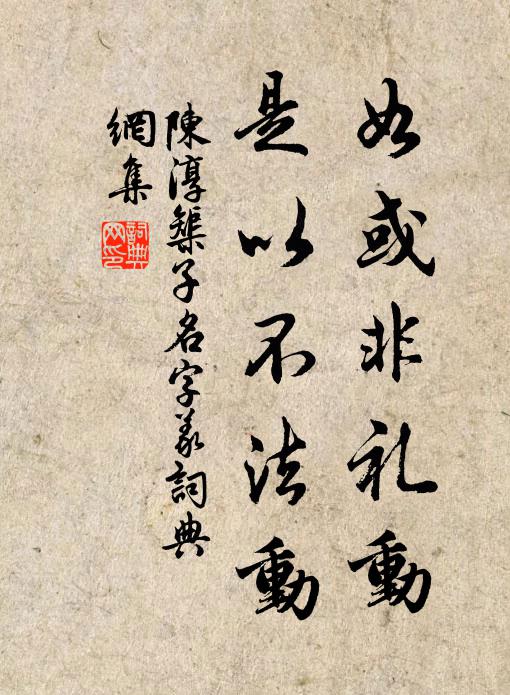 如或非礼動
是以不法動
陳淳榘子名字義詞典
網集
詞典
网印